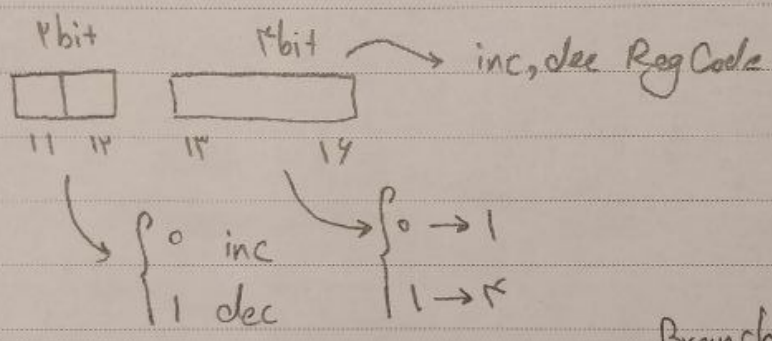 ۲bit ۴bit inc, dec Reg Code
۱۱ ۱۲ ۱۳ ۱۶
0 inc 0 → ۱
1 dec 1 → ۴
Branch